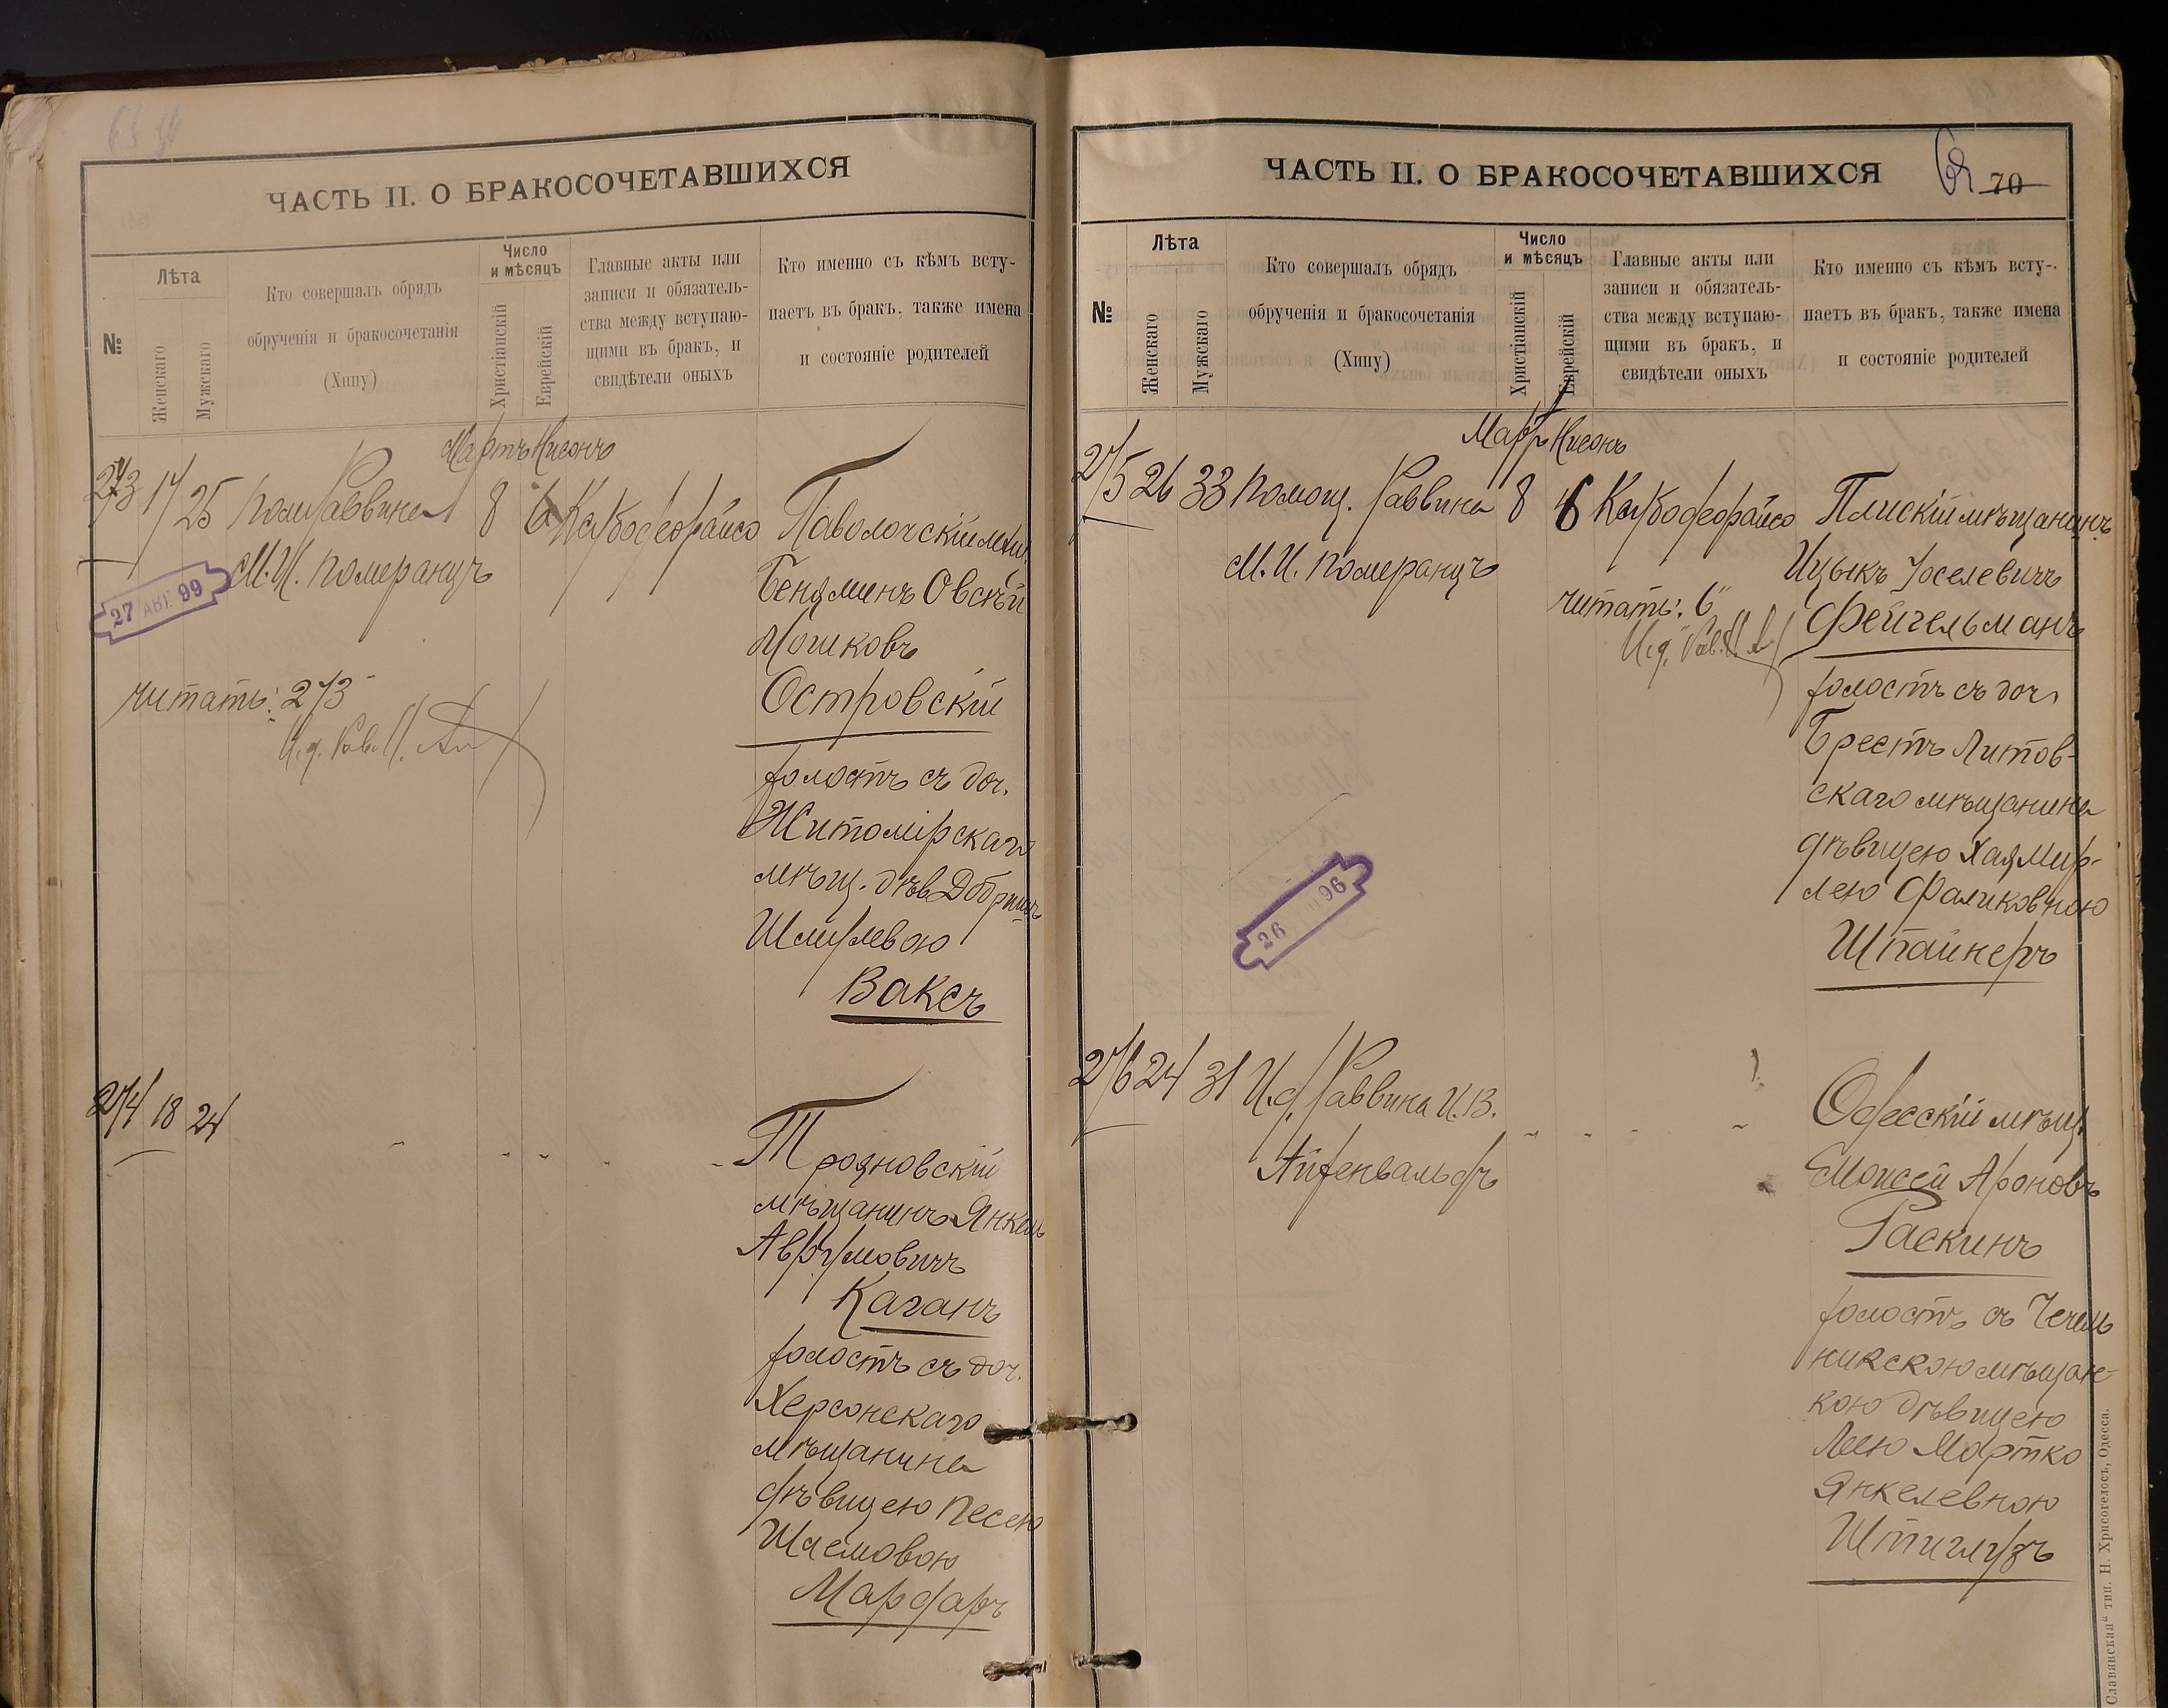 ЧАСТЬ II. О БРАКОСОЧЕТАВШИХСЯ
№
Лѣта
Женскаго
Мужскаго
Кто совершалъ обрядъ
обрученія и бракосочетанія
(Хипу)
Число
и мѣсяцъ
Христіанскій
Еврейскій
Главные акты или
записи и обязатель-
ства между вступаю-
щими въ бракъ, и
свидѣтели оныхъ
Кто именно съ кѣмъ всту-
паетъ въ бракъ, также имена
и состояніе родителей
Мартъ Нисонъ
273 17 25 Пом. Раввина 8 6
М. И. Померанцъ
27 АВГ. 99
читать: 273
И.д. Рав.
Паволочскій мѣщ.
Бенѧминъ Овсѣй
Мошковъ
Островскій
холостъ съ доч.
Житомірскаго
мѣщ. дѣв.
Шмулевою
Ваксъ
274 18 24
Трояновскій
мѣщанинъ Янкель
Аврумовичъ
Каганъ
холостъ съ доч.
Херсонскаго
мѣщанина
дѣвицею Песею
Шлемовою
Мардаръ
ЧАСТЬ II. О БРАКОСОЧЕТАВШИХСЯ
70
№
Лѣта
Женскаго
Мужскаго
Кто совершалъ обрядъ
обрученія и бракосочетанія
(Хипу)
Число
и мѣсяцъ
Христіанскій
Еврейскій
Главные акты или
записи и обязатель-
ства между вступаю-
щими въ бракъ, и
свидѣтели оныхъ
Кто именно съ кѣмъ всту-
паетъ въ бракъ, также имена
и состояніе родителей
Мартъ Нисонъ
275 26 33 Помощ. Раввина 8 6
М. И. Померанцъ
читать: 6
И.д. Рав.
26 96
Плискій мѣщанинъ
Ицыкъ Іоселевичъ
Фейгельманъ
холостъ съ доч.
Брестъ Литов-
скаго мѣщанина
дѣвицею Хая Мир-
лею Фаликовною
Шпайнеръ
276 24 31 И.д. Раввина И. В.
Айзенвальдъ
Одесскій мѣщ.
Моисей Ароновъ
Раскинъ
холостъ съ Чечель
никскою мѣщан-
кою дѣвицею
Леею
Янкелевною
Штиглузъ
Славянская“ тип. Н. Хрисогелосъ, Одесса.